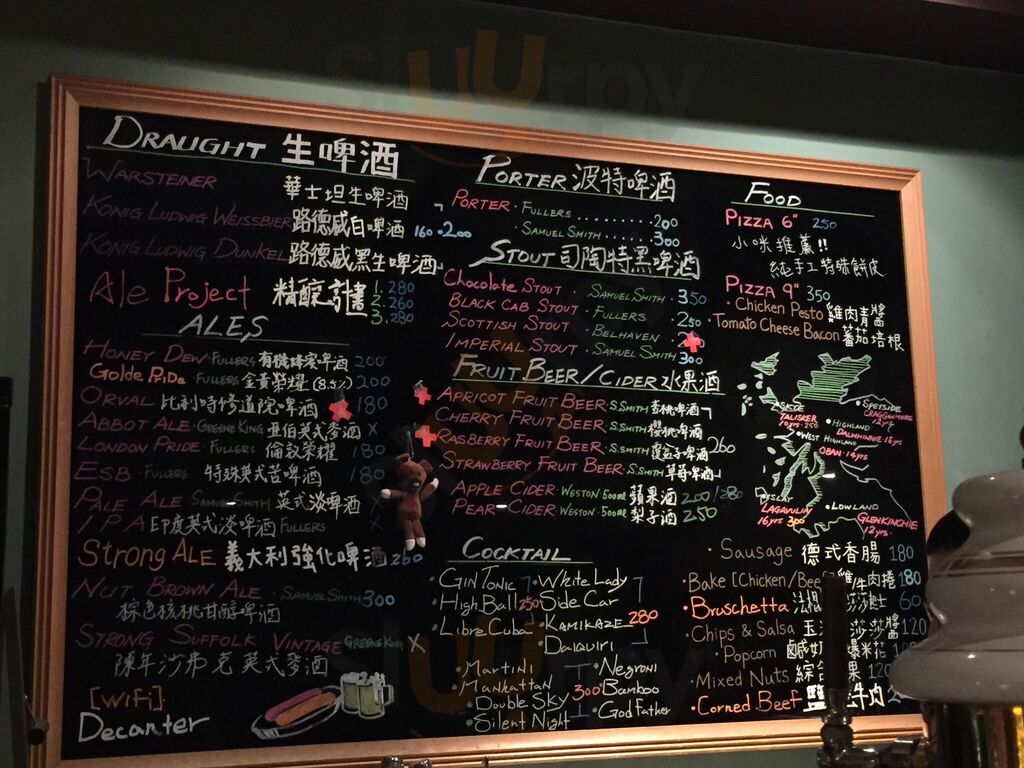 DRAUGHT 生啤酒
WARSTEINER 華士坦生啤酒
KONIG LUDWIG WEISSBIER 路德威白啤酒 160·200
KONIG LUDWIG DUNKEL 路德威黑生啤酒
Ale Project 精釀計畫 1. 280
2. 260
3. 280
ALES
HONEY DEW·FULLERS 有機蜂蜜啤酒 200
Golde PRiDe·FULLERS 金黃榮耀 (8.5%) 200
ORVAL 比利時修道院啤酒 180
ABBOT ALE·GREENE KING 亚伯英式麥酒 X
LONDON PRIDE·FULLERS 倫敦榮耀 180
ESB·FULLERS 特殊英式苦啤酒 180
PALE ALE·SAMUEL SMITH 英式淡啤酒 X
I P A 印度英式淡啤酒 FULLERS
Strong ALE 義大利強化啤酒 260
NUT BROWN ALE·SAMUEL SMITH 300
棕色核桃甘醇啤酒
STRONG SUFFOLK VINTAGE GREENE KING X
陳年沙弗克英式麥酒
[WiFi]
Decanter
PORTER 波特啤酒
PORTER·FULLERS ......... 200
·SAMUEL SMITH ..... 300
STOUT 司陶特黑啤酒
Chocolate STOUT·SAMUEL SMITH·350
BLACK CAB STOUT·FULLERS 250
SCOTTISH STOUT·BELHAVEN
IMPERIAL STOUT·SAMUEL SMITH 300
FRUIT BEER/CIDER 水果酒
APRICOT FRUIT BEER·S.SMITH 杏桃啤酒
CHERRY FRUIT BEER·S.SMITH 櫻桃啤酒
RASBERRY FRUIT BEER·S.SMITH 覆盆子啤酒 260
STRAWBERRY FRUIT BEER·S.SMITH 草莓啤酒
APPLE CIDER·WESTON·500ml 蘋果酒 200/280
PEAR CIDER·WESTON·500ml 梨子酒 250
COCKTAIL
·GIN TONIC ·White Lady
·High Ball 250 ·Side Car
·Libre Cuba ·KAMIKAZE 280
·Daiquiri
·Martini ·Negroni
·Manhattan ·Bamboo
·Double Sky 300 ·God Father
·Silent Night
FOOD
PIZZA 6" 250
小咪推薦!!
純手工特殊餅皮
PIZZA 9" 350
·Chicken Pesto 雞肉青醬
·Tomato Cheese Bacon 蕃茄培根
TALISKER
10yrs·250
·SPEYSIDE
CRAGGANMORE
12yrs
·HIGHLAND
DALWHINNIE 15yrs
·WEST HIGHLAND
OBAN·14yrs
LAGAVULIN
16yrs 300
·LOWLAND
GLENKINCHIE
12yrs
·Sausage 德式香腸 180
·Bake [Chicken/Bee 牛肉捲 180
·Bruschetta 莎莎 60
·Chips & Salsa 玉 莎莎醬 120
·Popcorn 鹹 爆米花 100
·Mixed Nuts 綜合 果 120
·Corned Beef 鹽 牛肉 2